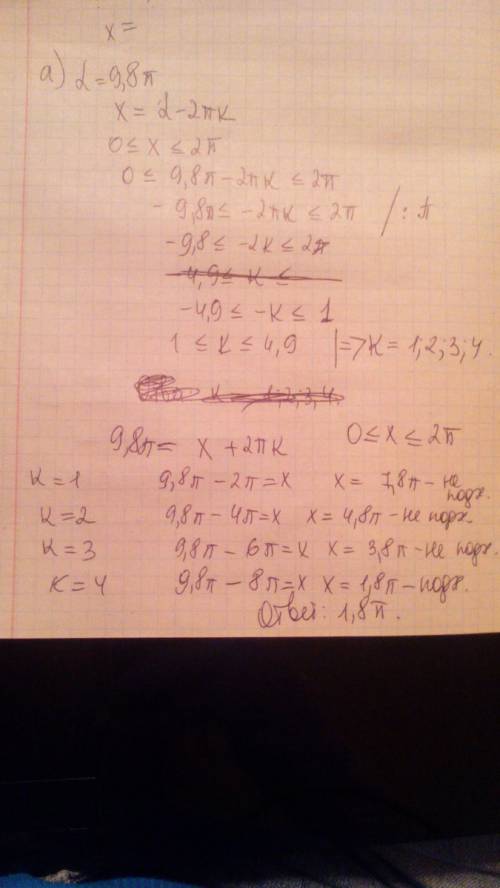 x =
а) α = 9,8π
x = α - 2πк
0 ≤ x ≤ 2π
0 ≤ 9,8π - 2πк ≤ 2π
- 9,8π ≤ - 2πк ≤ 2π / : π
- 9,8 ≤ - 2к ≤ 2π
- 4,9 ≤ к ≤
- 4,9 ≤ - к ≤ 1
1 ≤ к ≤ 4,9 |=> к = 1; 2; 3; 4.
к 1; 2; 3; 4.
9,8π = x + 2πк 0 ≤ x ≤ 2π
к = 1 9,8π - 2π = x x = 7,8π - не подх.
к = 2 9,8π - 4π = x x = 4,8π - не подх.
к = 3 9,8π - 6π = x x = 3,8π - не подх.
к = 4 9,8π - 8π = x x = 1,8π - подх.
Ответ: 1,8π.